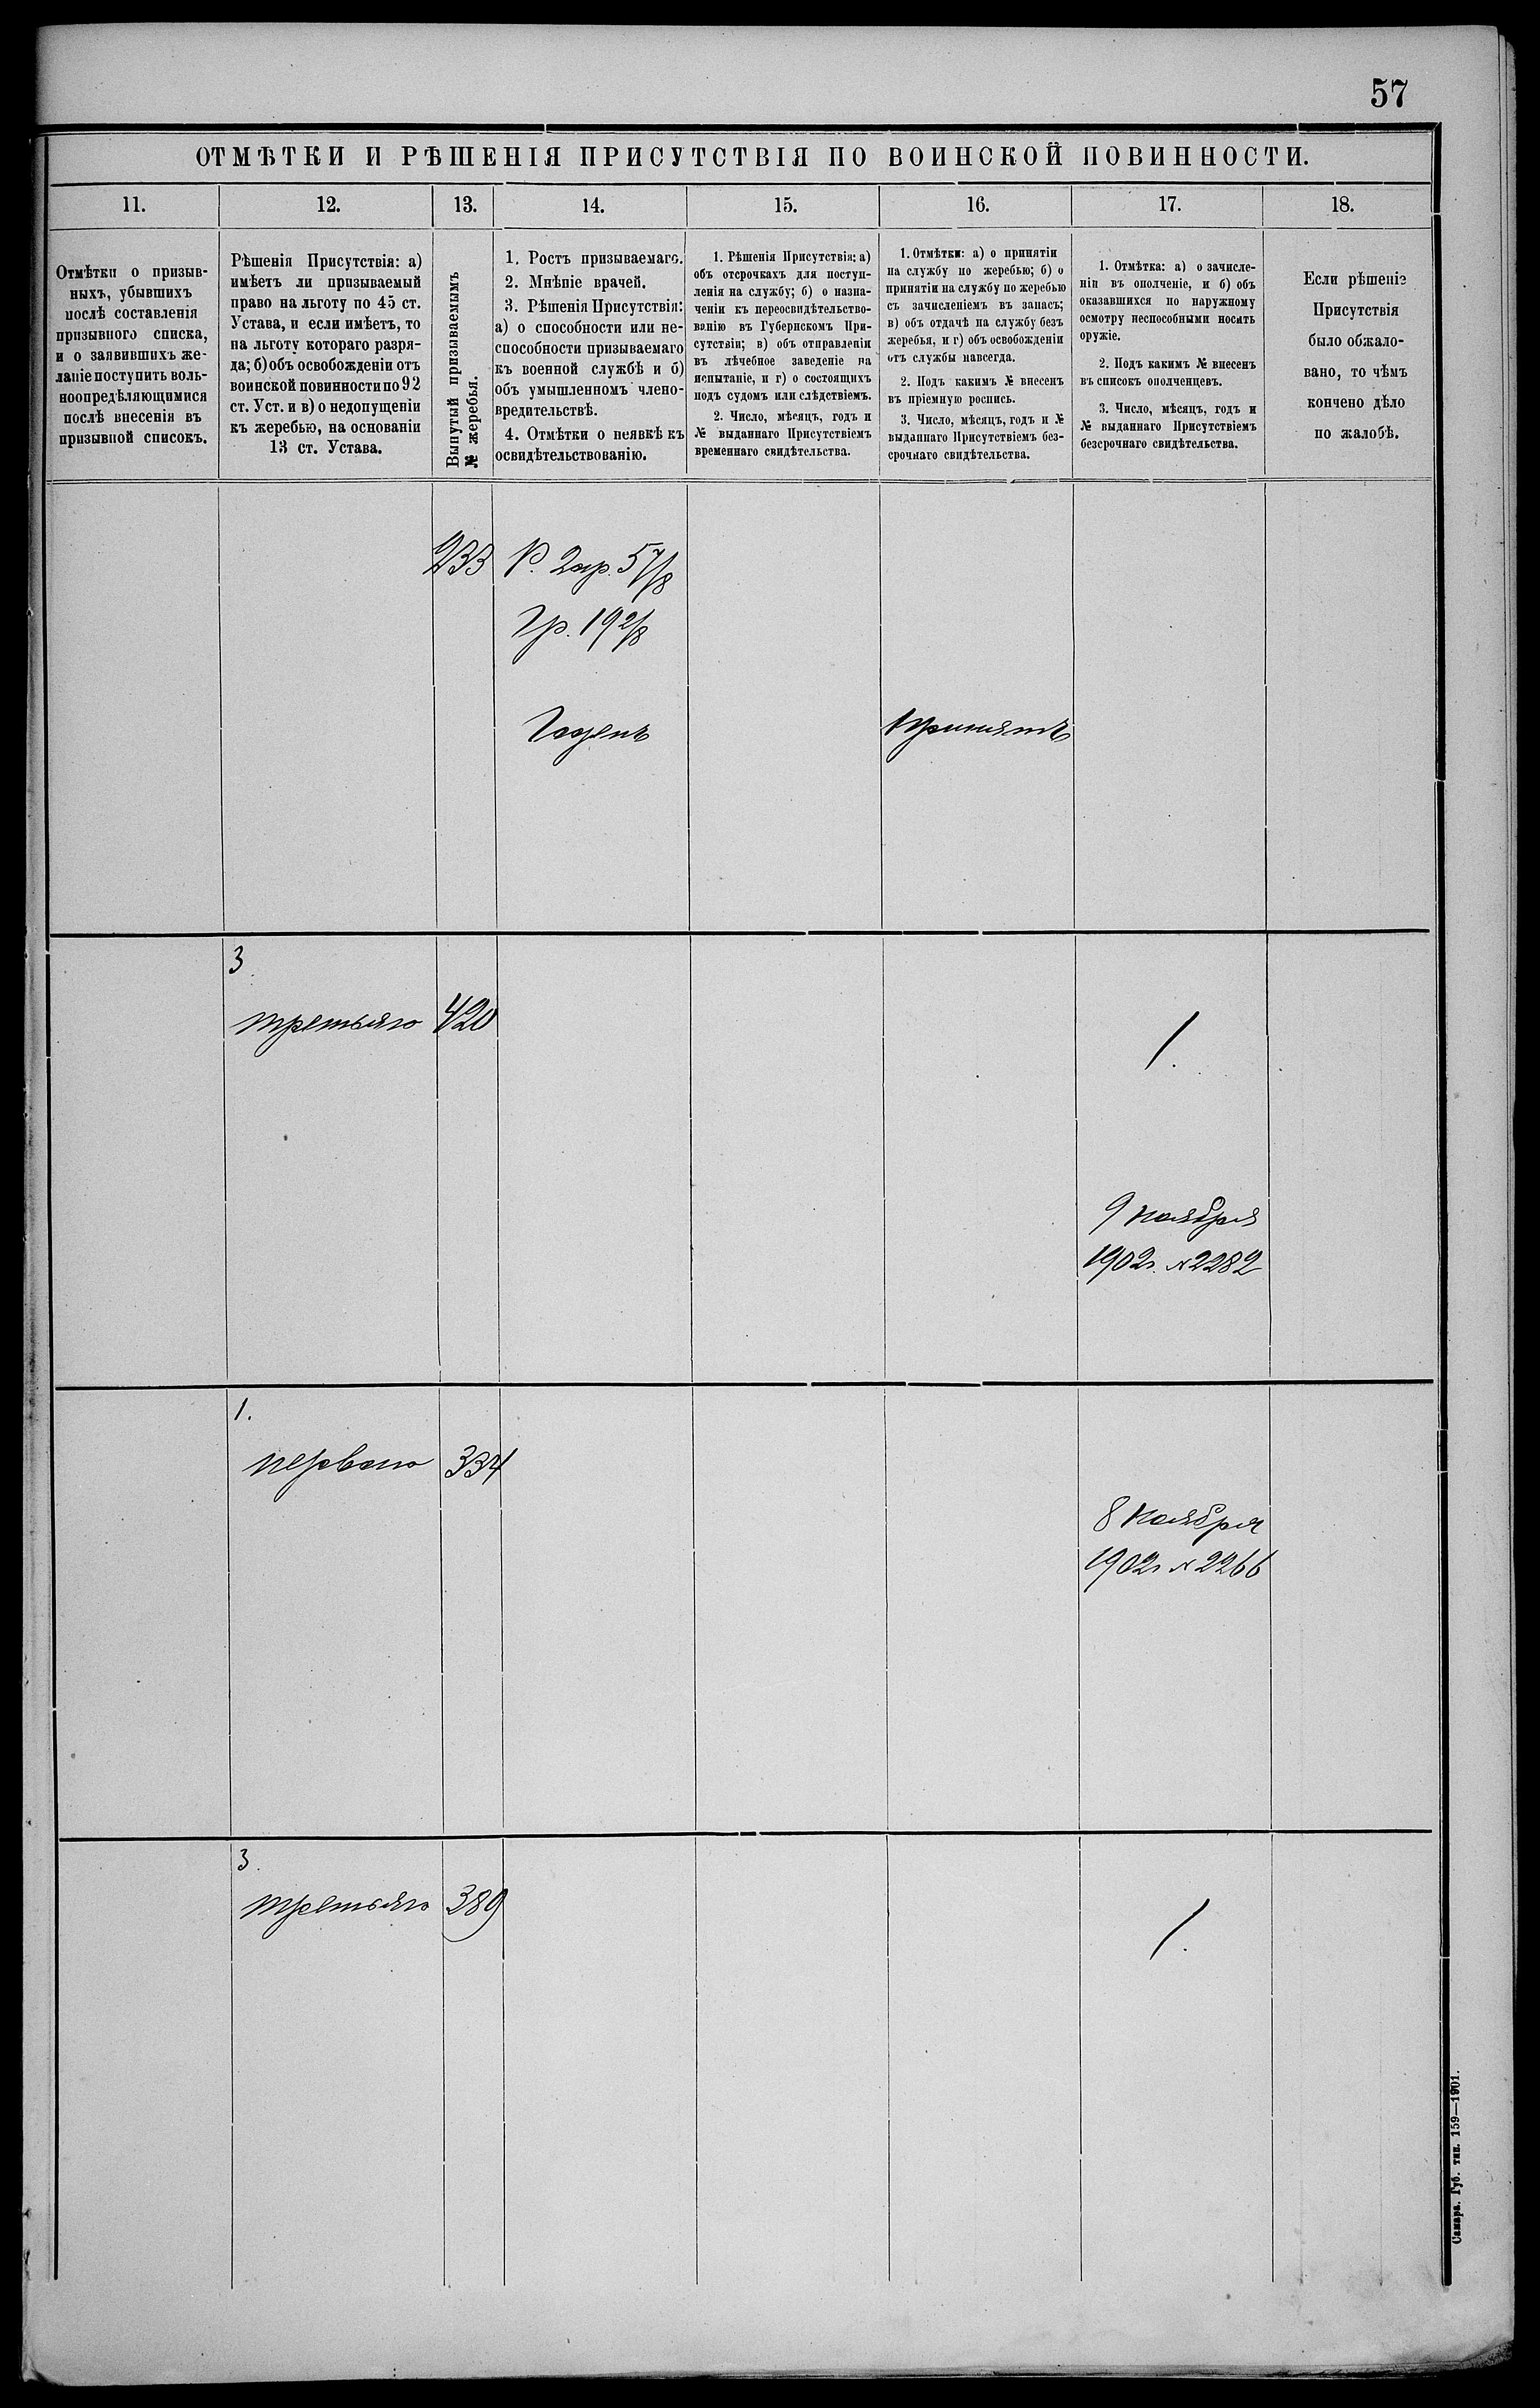 57
ОТМѢТКИ И РѢШЕНІЯ ПРИСУТСТВІЯ ПО ВОИНСКОЙ ПОВИННОСТИ.
11.
12.
13.
14.
15.
16.
17.
18.
Отмѣтки о призыв-
ныхъ, убывшихъ
послѣ составленія
призывного списка,
и о заявившихъ же-
ланіе поступить воль-
ноопредѣляющимися
послѣ внесенія въ
призывной списокъ.
Рѣшенія Присутствія: а)
имѣетъ ли призываемый
право на льготу по 45 ст.
Устава, и если имѣетъ, то
на льготу котораго разря-
да; б) объ освобожденіи отъ
воинской повинности по 92
ст. Уст. и в) о недопущеніи
къ жеребью, на основаніи
13 ст. Устава.
Вынутый призываемымъ
№ жеребья.
1. Ростъ призываемаго.
2. Мнѣніе врачей.
3. Рѣшенія Присутствія:
а) о способности или не-
способности призываемаго
къ военной службѣ и б)
объ умышленномъ члено-
вредительствѣ.
4. Отмѣтки о неявкѣ къ
освидѣтельствованію.
1. Рѣшенія Присутствія: а)
объ отсрочкахъ для поступ-
ленія на службу; б) о назна-
ченіи къ переосвидѣтельство-
ванію въ Губернскомъ При-
сутствіи; в) объ отправленіи
въ лѣчебное заведеніе на
испытаніе, и г) о состоящихъ
подъ судомъ или слѣдствіемъ.
2. Число, мѣсяцъ, годъ и
№ выданнаго Присутствіемъ
временнаго свидѣтельства.
1. Отмѣтки: а) о принятіи
на службу по жеребью; б) о
принятіи на службу по жеребью
съ зачисленіемъ въ запасъ;
в) объ отдачѣ на службу безъ
жеребья, и г) объ освобожденіи
отъ службы навсегда.
2. Подъ какимъ № внесенъ
въ пріемную роспись.
3. Число, мѣсяцъ, годъ и №
выданнаго Присутствіемъ без-
срочнаго свидѣтельства.
1. Отмѣтка: а) о зачисле-
ніи въ ополченіе, и б) объ
оказавшихся по наружному
осмотру неспособными носить
оружіе.
2. Подъ какимъ № внесенъ
въ списокъ ополченцевъ.
3. Число, мѣсяцъ, годъ и
№ выданнаго Присутствіемъ
безсрочнаго свидѣтельства.
Если рѣшеніе
Присутствія
было обжало-
вано, то чѣмъ
кончено дѣло
по жалобѣ.
233 Р. 2 ар. 5 7/8
Гр. 19 2/8
Годенъ
принятъ
3
третьяго 420
1.
9 ноября
1902 г. № 2282
1.
перваго 334
8 ноября
1902 г № 2266
3.
третьяго 389
1.
Самара. Губ. тип. 159—1901.